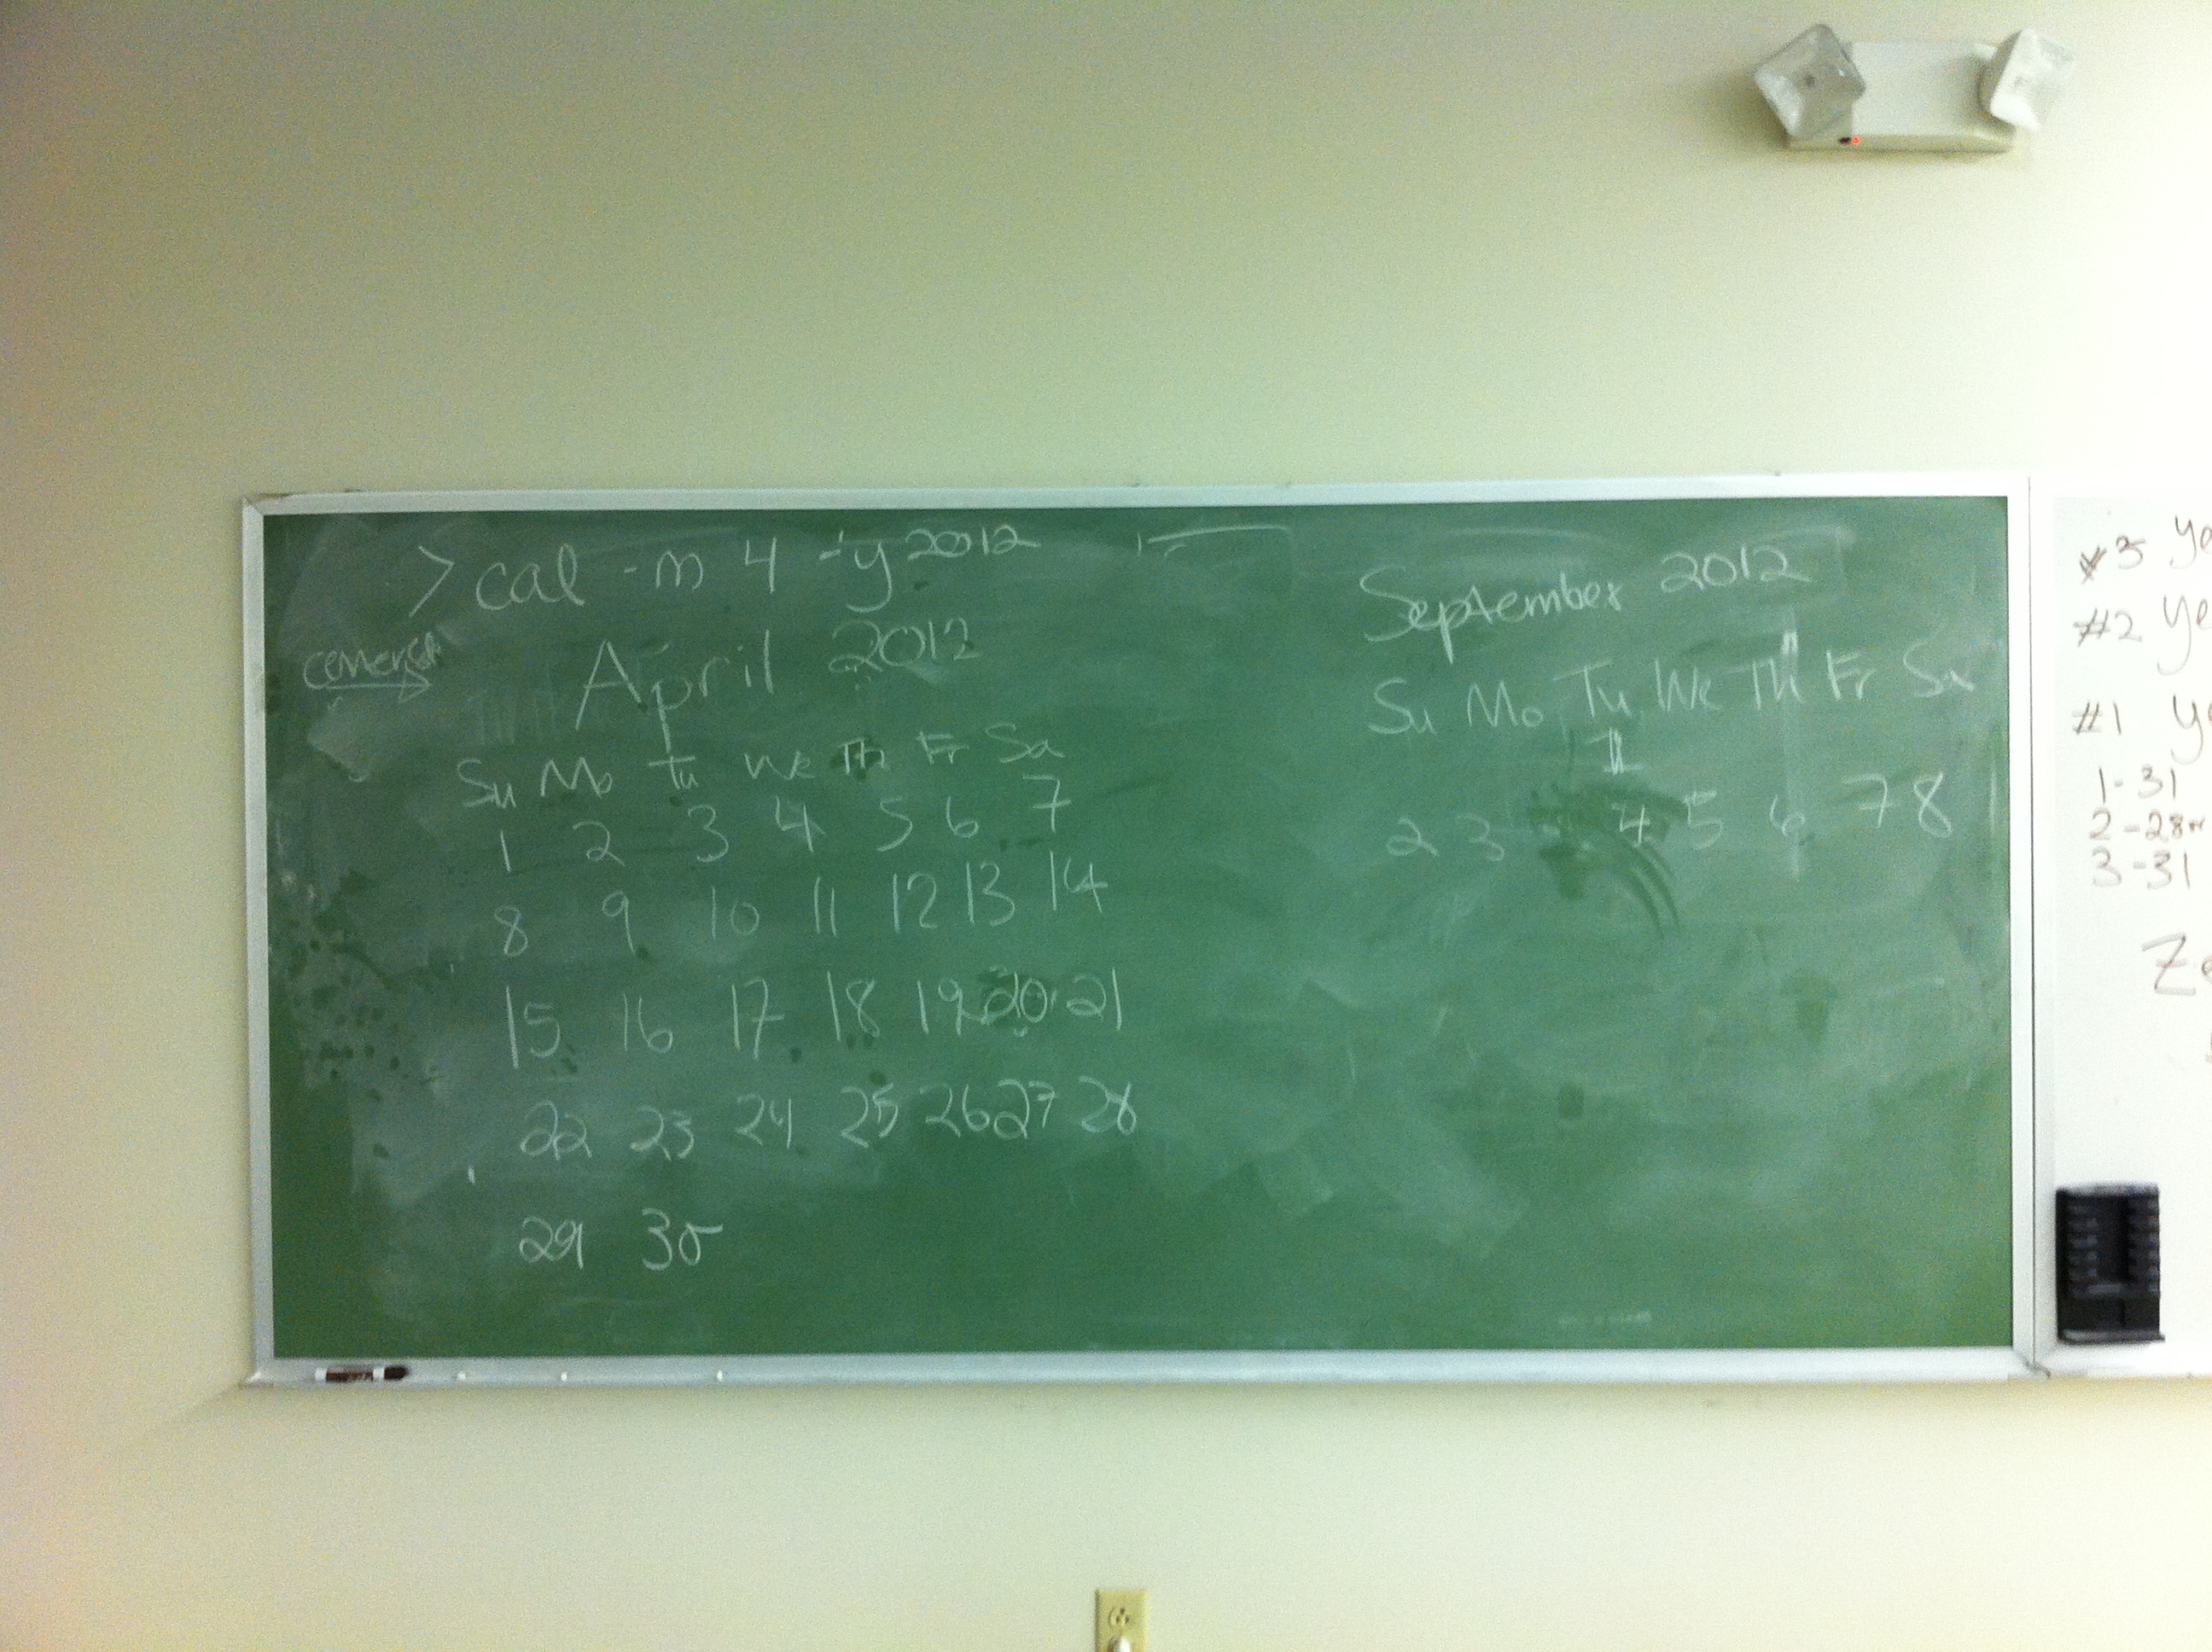 > cal -m 4 -y 2012
centered
April 2012
Su Mo Tu We Th Fr Sa
1 2 3 4 5 6 7
8 9 10 11 12 13 14
15 16 17 18 19 20 21
22 23 24 25 26 27 28
29 30
September 2012
Su Mo Tu We Th Fr Sa
1
2 3 4 5 6 7 8
#3 ye
#2 ye
#1 ye
1-31
2-28
3-31